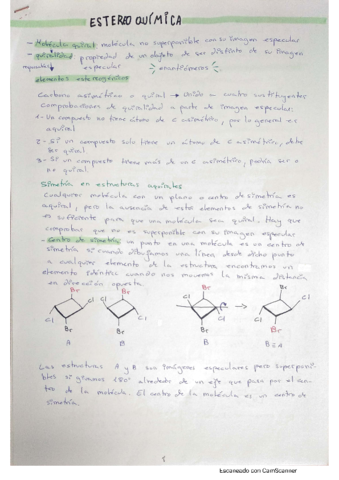 ESTEREOQUÍMICA
- Molécula quiral: molécula no superponible con su imagen especular
- quiralidad propiedad de un objeto de ser distinto de su imagen
especular
enantiómeros
elementos estereogénicos
Carbono asimétrico o quiral → Unido a cuatro sustituyentes
Comprobaciones de quiralidad a parte de imagen especular:
1- Un compuesto no tiene átomo de C asimétrico, por lo general es
aquiral
2- Si un compuesto solo tiene un átomo de C asimétrico, debe
ser quiral.
3- Si un compuesto tiene más de un C asimétrico, podría ser o
no quiral.
Simetría en estructuras aquirales
Cualquier molécula con un plano o centro de simetría es
aquiral, pero la ausencia de estos elementos de simetría no
es suficiente para que una molécula sea quiral. Hay que
comprobar que no es superponible con su imagen especular
- Centro de simetría: un punto en una molécula es un centro de
simetría si cuando dibujamos una línea desde dicho punto
a cualquier elemento de la estructura encontramos un
elemento idéntico cuando nos movemos la misma distancia
en dirección opuesta.
Br Br Br Br
Cl Cl Cl Cl
Cl Cl
Br Br Br Br
A B B B≡A
Las estructuras A y B son imágenes especulares pero superponi-
bles si giramos 180° alrededor de un eje que pasa por el cen-
tro de la molécula. El centro de la molécula es un centro de
simetría
Escaneado con CamScanner